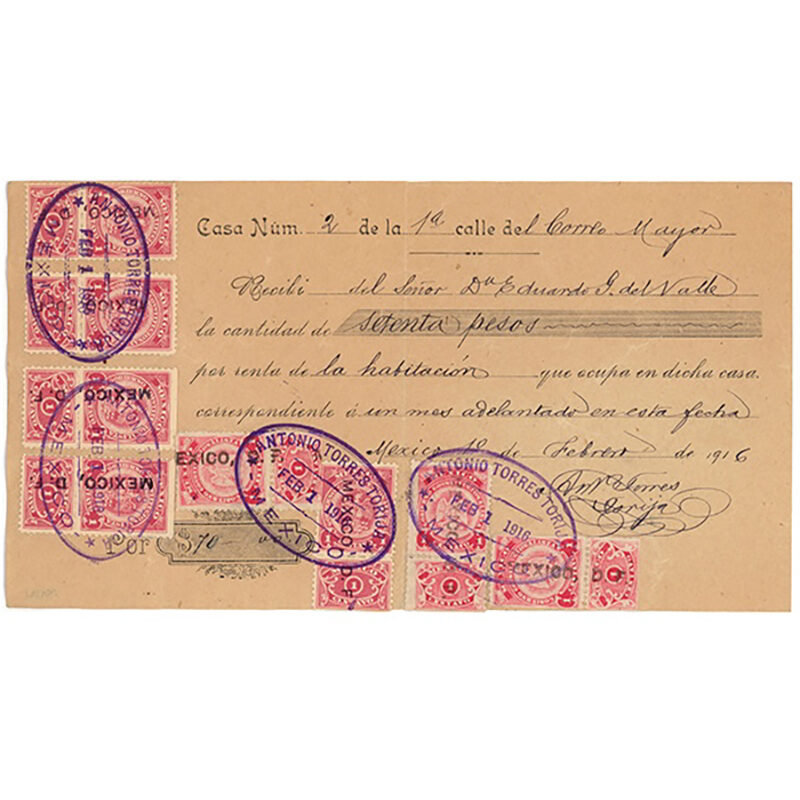 Casa Núm. 2 de la 1ª calle del Correo Mayor
Recibí del Señor Dn Eduardo G. del Valle
la cantidad de setenta pesos
por renta de la habitación que ocupa en dicha casa.
correspondiente á un mes adelantado en esta fecha
Mexico 1º de Febrero de 1916
Antº Torres
Torija
Por $70
ANTONIO TORRES TORIJA
FEB 1 1916
MEXICO
ANTONIO TORRES TORIJA
FEB 1 1916
MEXICO
ANTONIO TORRES TORIJA
FEB. 1 1916
MEXICO
ANTONIO TORRES TORIJA
FEB 1 1916
MEXICO
MEXICO, D. F.
MEXICO, D. F.
MEXICO, D. F.
MEXICO D. F.
MEXICO, D F
1 CENTAVO
1 CENTAVO
1